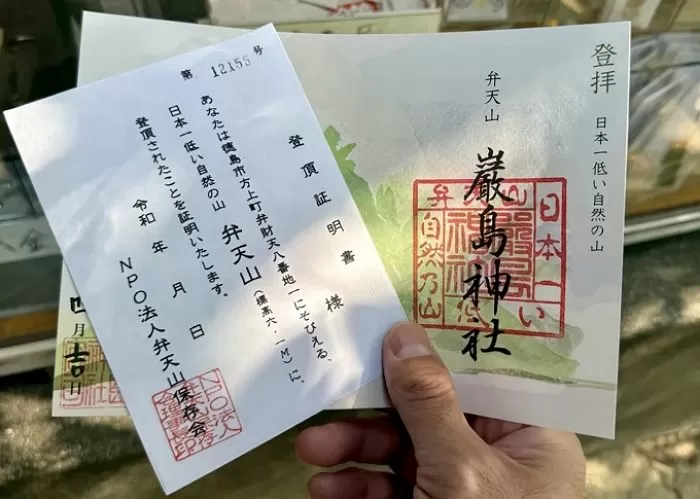 第 12155 号
登頂証明書
様
あなたは徳島市方上町弁財天八番地一にそびえる、
日本一低い自然の山 弁天山(標高六.一M)に、
登頂されたことを証明いたします。
令和 年 月 日
NPO法人弁天山保存会
登拝 日本一低い自然の山
弁天山
巌島神社
日本一
い
自然乃山
弁
四月吉日